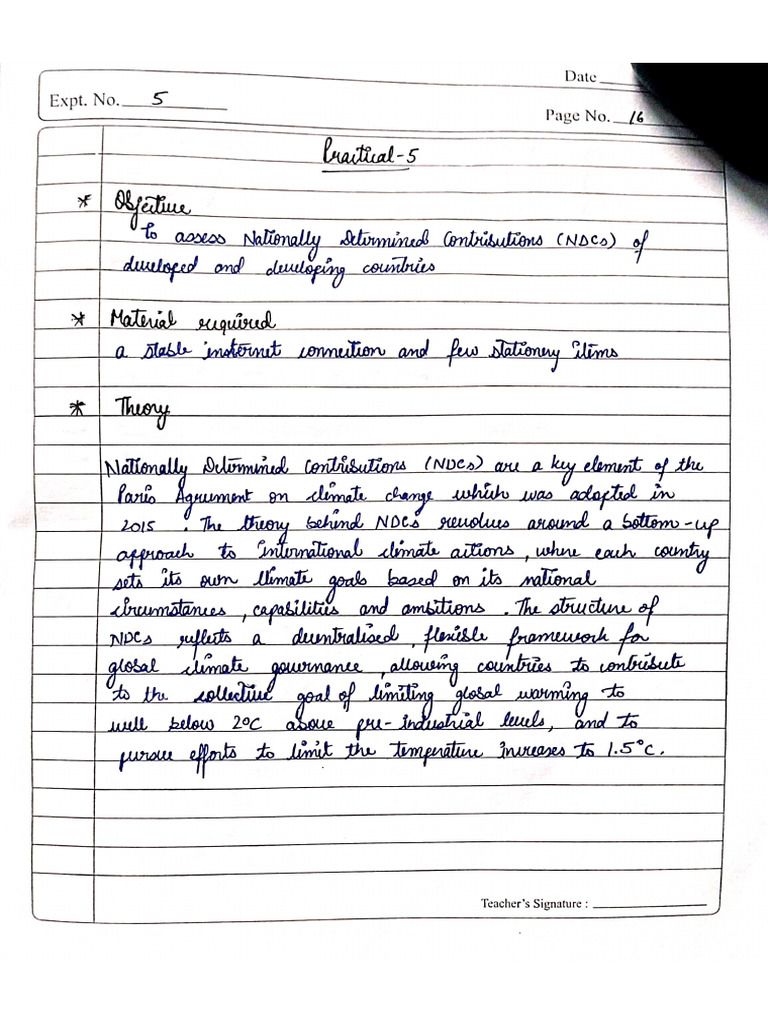 Date
Expt. No. 5
Page No. 16
Practical-5
* Objective
To assess Nationally Determined Contributions (NDCs) of
developed and developing countries
* Material required
a stable insternet connection and few stationery items
* Theory
Nationally Determined Contributions (NDCs) are a key element of the
Paris Agrument on climate change which was adopted in
2015 . The theory behind NDCs revolves around a bottom-up
approach to international climate actions, where each country
sets its own climate goals based on its national
circumstances, capabilities and ambitions. The structure of
NDCs reflects a decentralised, flexible framework for
global climate governance, allowing countries to contribute
to the collective goal of limiting global warming to
well below 2°C above pre-industrial levels, and to
pursue efforts to limit the temperature increases to 1.5°C.
Teacher's Signature :